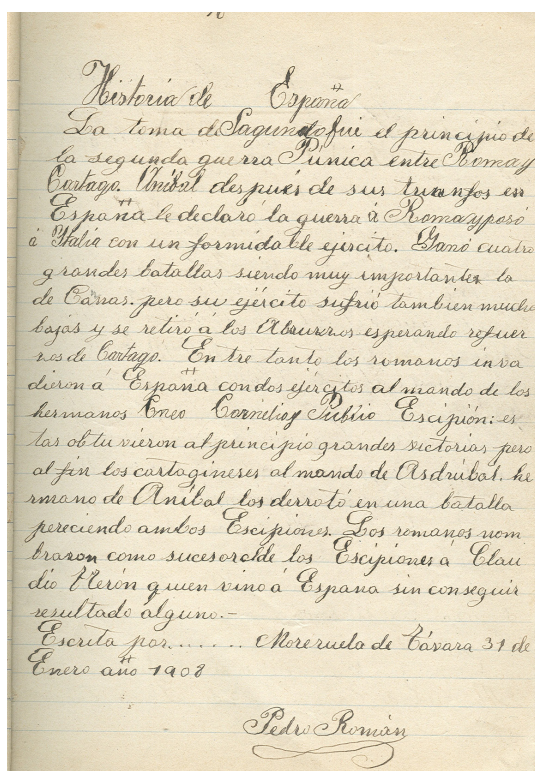 Historia de España
La toma de Sagundo fué el principio de
la segunda guerra Púnica entre Roma y
Cartago. Anibal después de sus triunfos en
España le declaró la guerra á Roma y pasó
á Italia con un formidable ejército. Ganó cuatro
grandes batallas siendo muy importante la
de Canas. pero su ejército sufrió tambien mucho
bajas y se retiró á los Abruzenos esperando refuer
zos de Cartago. En tre tanto los romanos inva
dieron á España con dos ejércitos al mando de los
hermanos Cneo Cornelio y Publio Escipión: es
tas obtu vieron al principio grandes victorias pero
al fin los cartagineses al mando de Asdrúbal. he
rmano de Aníbal los derrotó en una batalla
pereciendo ambos Escipiones. Los romanos nom
braron como sucesor de los Escipiones á Clau
dio Nerón quien vino á España sin conseguir
resultado alguno.-
Escrita por....... Moreruela de Távara 31 de
Enero año 1908
Pedro Román